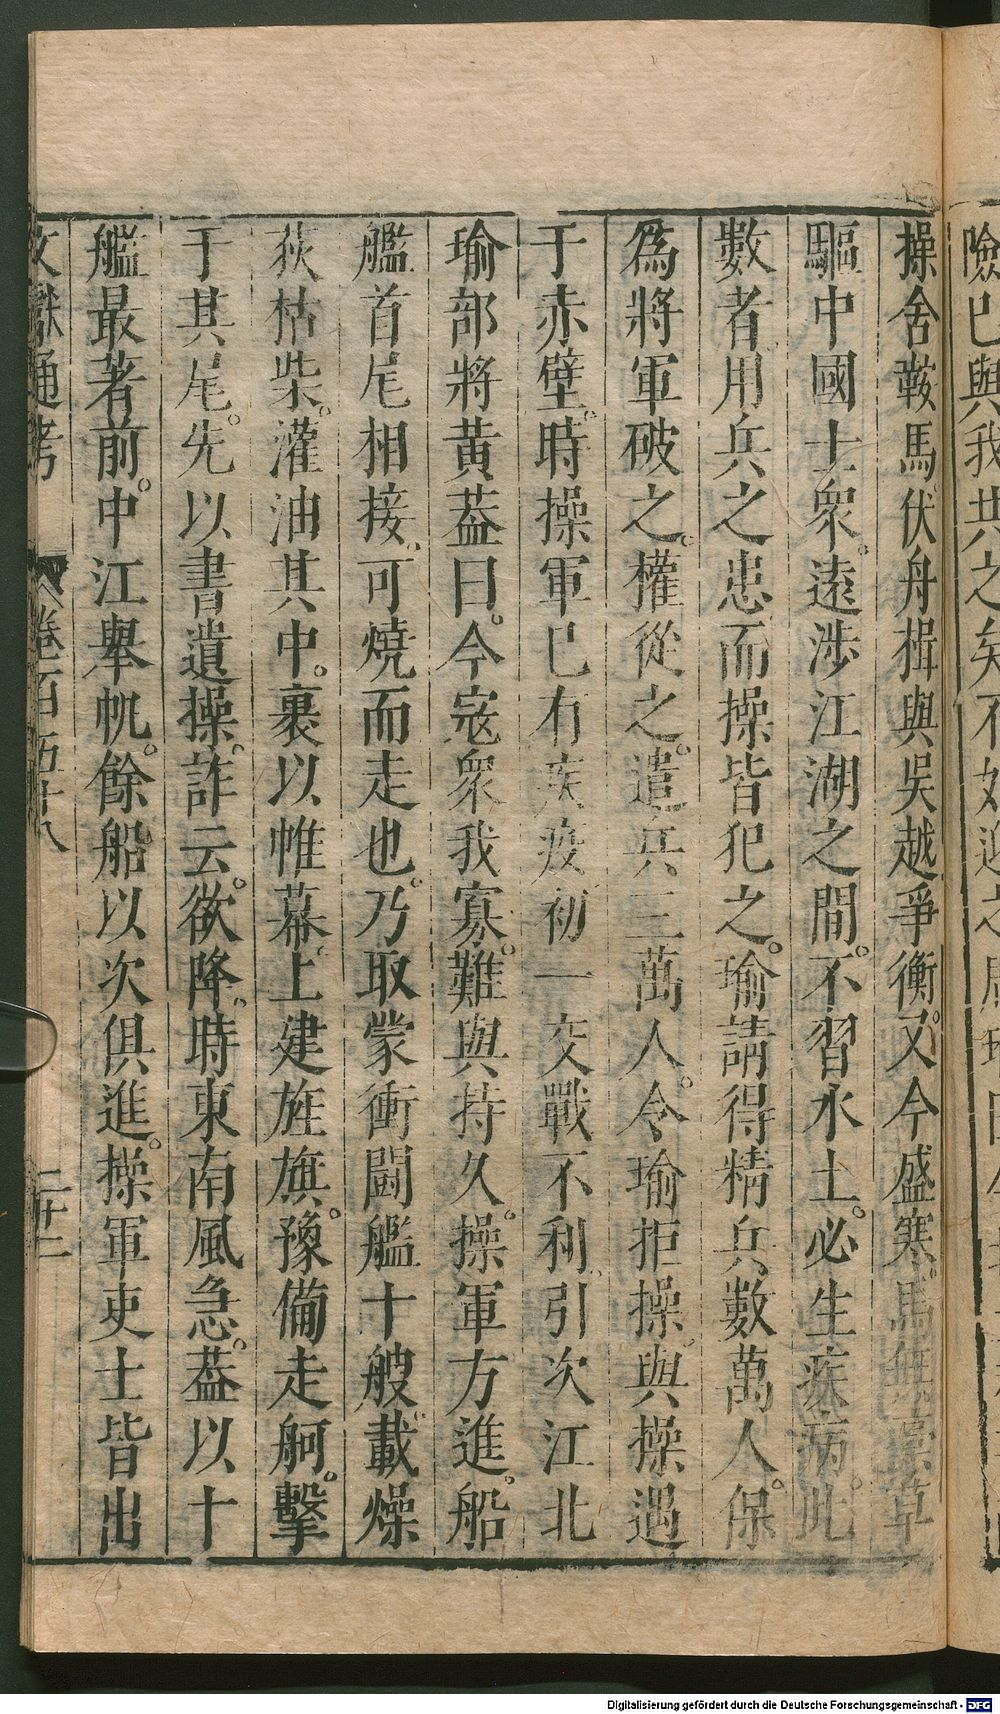 險已與我共之矣不如迎之
操舍鞍馬伏舟楫與吳越爭衡又今盛寒馬無藁草
驅中國士衆遠涉江湖之間不習水土必生疾病此
數者用兵之患而操皆犯之瑜請得精兵數萬人保
爲將軍破之權從之遣兵三萬人令瑜拒操與操遇
于赤壁時操軍已有疾疫初一交戰不利引次江北
瑜部將黃蓋曰今寇衆我寡難與持久操軍方進船
艦首尾相接可燒而走也乃取蒙衝鬬艦十艘載燥
荻枯柴灌油其中裹以帷幕上建旌旗豫備走舸擊
于其尾先以書遺操詐云欲降時東南風急葢以十
艦最著前中江舉帆餘船以次俱進操軍吏士皆出
文獻通考 卷一百五十八 二十二
Digitalisierung gefördert durch die Deutsche Forschungsgemeinschaft - DFG